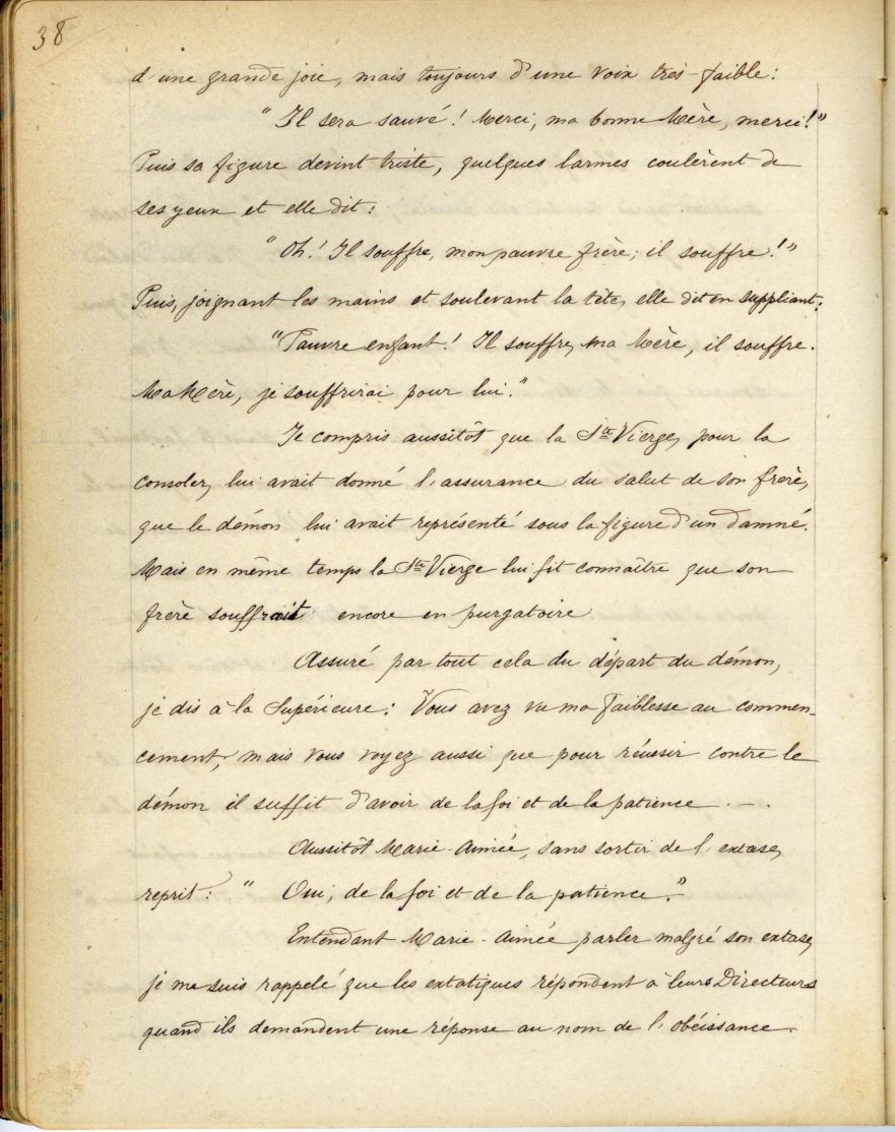 38
d'une grande joie, mais toujours d'une voix très-faible:
"Il sera sauvé! Merci, ma bonne Mère, merci!"
Puis sa figure devint triste, quelques larmes coulèrent de
ses yeux et elle dit:
"Oh! Il souffre, mon pauvre frère; il souffre!"
Puis, joignant les mains et soulevant la tête, elle dit en suppliant:
"Pauvre enfant! Il souffre, ma Mère, il souffre.
Ma Mère, je souffrirai pour lui."
Je compris aussitôt que la Ste Vierge, pour la
consoler, lui avait donné l'assurance du salut de son frère,
que le démon lui avait représenté sous la figure d'un damné.
Mais en même temps la Ste Vierge lui fit connaître que son
frère souffrait encore en purgatoire
Assuré par tout cela du départ du démon,
je dis à la Supérieure: Vous avez vu ma faiblesse au commen-
cement, mais vous voyez aussi que pour réussir contre le
démon il suffit d'avoir de la foi et de la patience . — .
Aussitôt Marie-Aimée, sans sortir de l'extase,
reprit: "Oui, de la foi et de la patience."
Entendant Marie-Aimée parler malgré son extase,
je me suis rappelé que les extatiques répondent à leurs Directeurs
quand ils demandent une réponse au nom de l'obéissance.